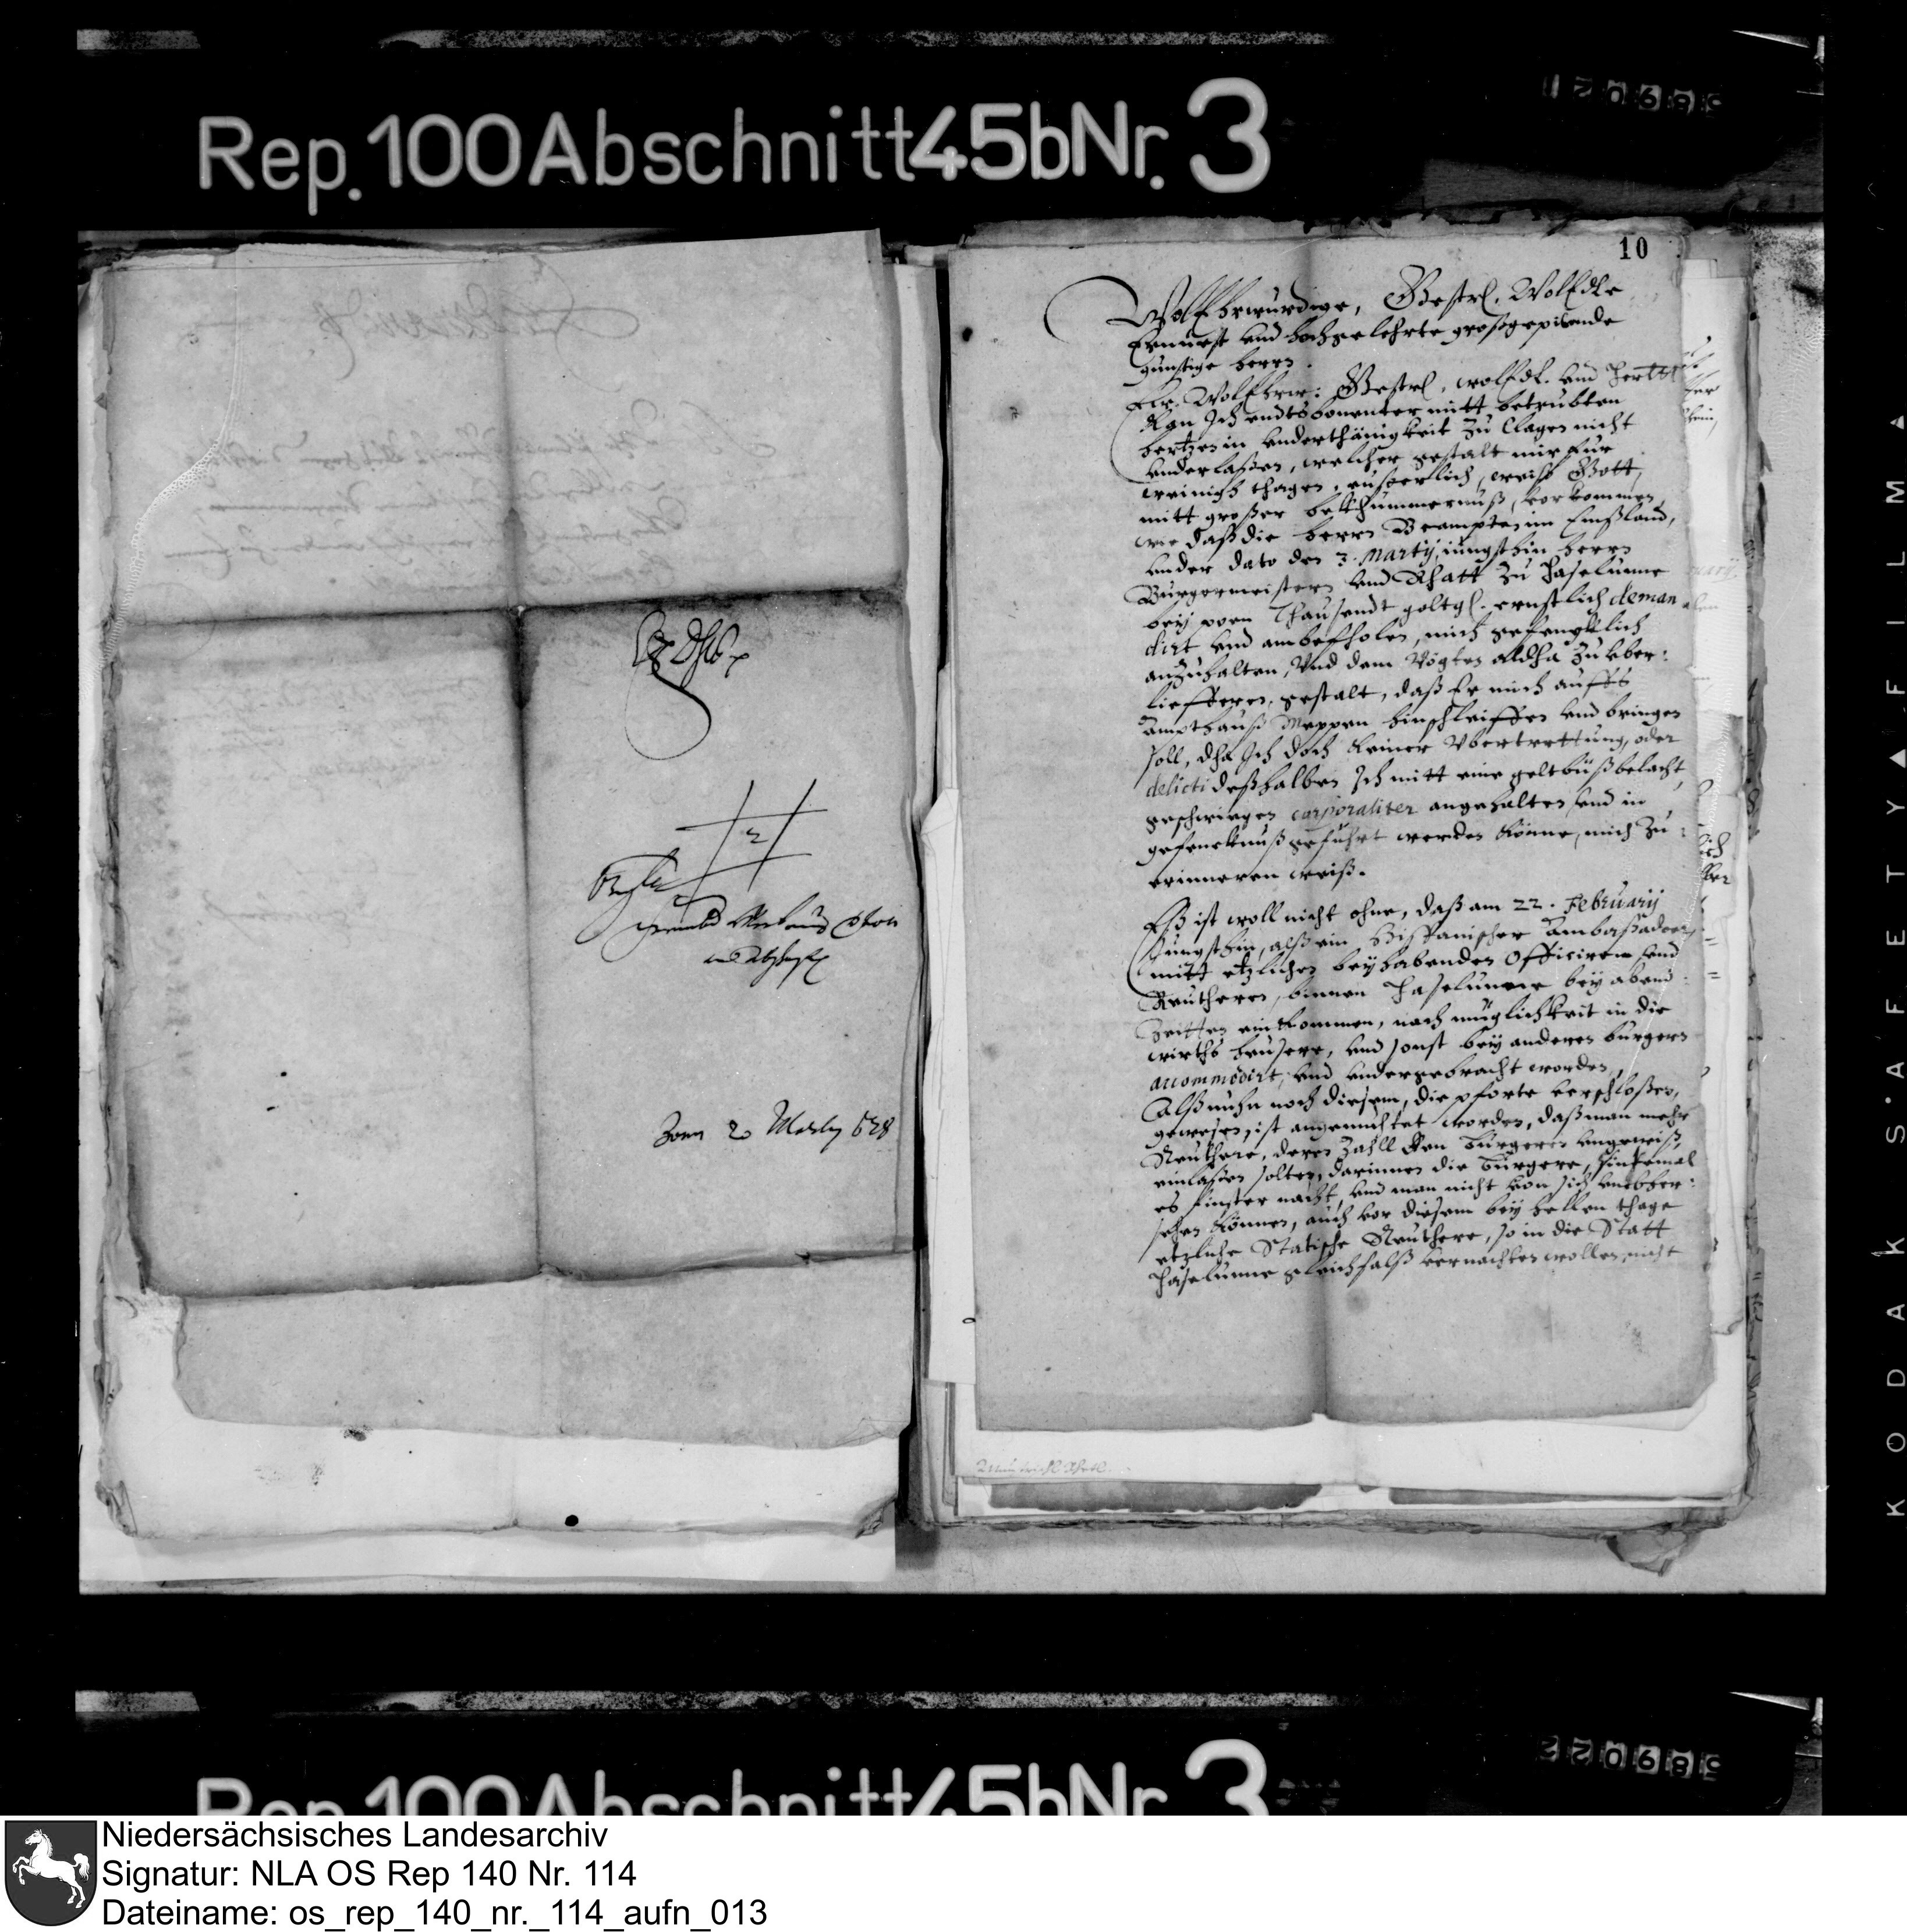 Rep. 100 Abschnitt 45b Nr. 3
10
Wollehrwürdige, Gestr. Wolledle
Ernueste vnd hochgelehrte großgepietende
gunstige herrn.
Ew. Wollehrw: Gestr. wolledl. vnd herttl
Kan Ich endtsbonenter mitt betrubten
hertzen in vnderthänigkeit zu clagen nicht
vnderlaßen, welcher gestalt mir für
wenigh thagen, eußerlich, weiß Gott,
mitt großer bekhummernuß, vorkommen,
wie daß die herrn Beampten im Emßland,
vnder dato den 3. Martij, iungsthin herrn
Burgermeistern vnd Rhatt zu Haselunne
bey poen Thausendt goltgl. ernstlich deman
dirt vnd ambefholen, mich gefengklich
anzuhalten, vnd dem Vögten aldha zu vber:
lieffern, gestalt, daß Er mich auffs
Ampthauß Meppen hinschleiffen vnd bringen
soll, dha Ich doch keiner Vbertrettung, oder
delicti deßhalben Ich mitt eine geltbüß belacht,
geschwiegen corporaliter angehalten vnd in
gefencknuß gefuhrt werden könne, mich zu
erinneren weiß.
Eß ist woll nicht ohne, daß am 22. Februarij
Jungsthin, alß ein Hispanischer Ambaßadoer
mitt etzlichen beyhabenden Officiren vnd
Reutheren, binnen Haselunne bey abend
Zeitten einkommen, nach müglichkeit in die
wirths heusere, vnd sonst bey anderen burgern
accommodirt, vnd vndergebracht worden,
Alß nuhn noch diesem, die pforte verschloßen,
gewesen, ist angemuhtet worden, daß man mehr
Reuthere, deren Zahll den Burgern vngewiß,
einlaßen solten, darinnen die Burgere, sintemal
es finster nacht, vnd man nicht von sich
sehen können, auch vor diesem bey hellen thage
etzliche Statische Reuthere, so in die Statt
Haselunne gleichfalß vernachten wollen, nicht
20 Martij 628
KODAK SAFETY FILM
Rep. 100 Abschnitt 45b Nr. 3
Niedersächsisches Landesarchiv
Signatur: NLA OS Rep 140 Nr. 114
Dateiname: os_rep_140_nr._114_aufn_013